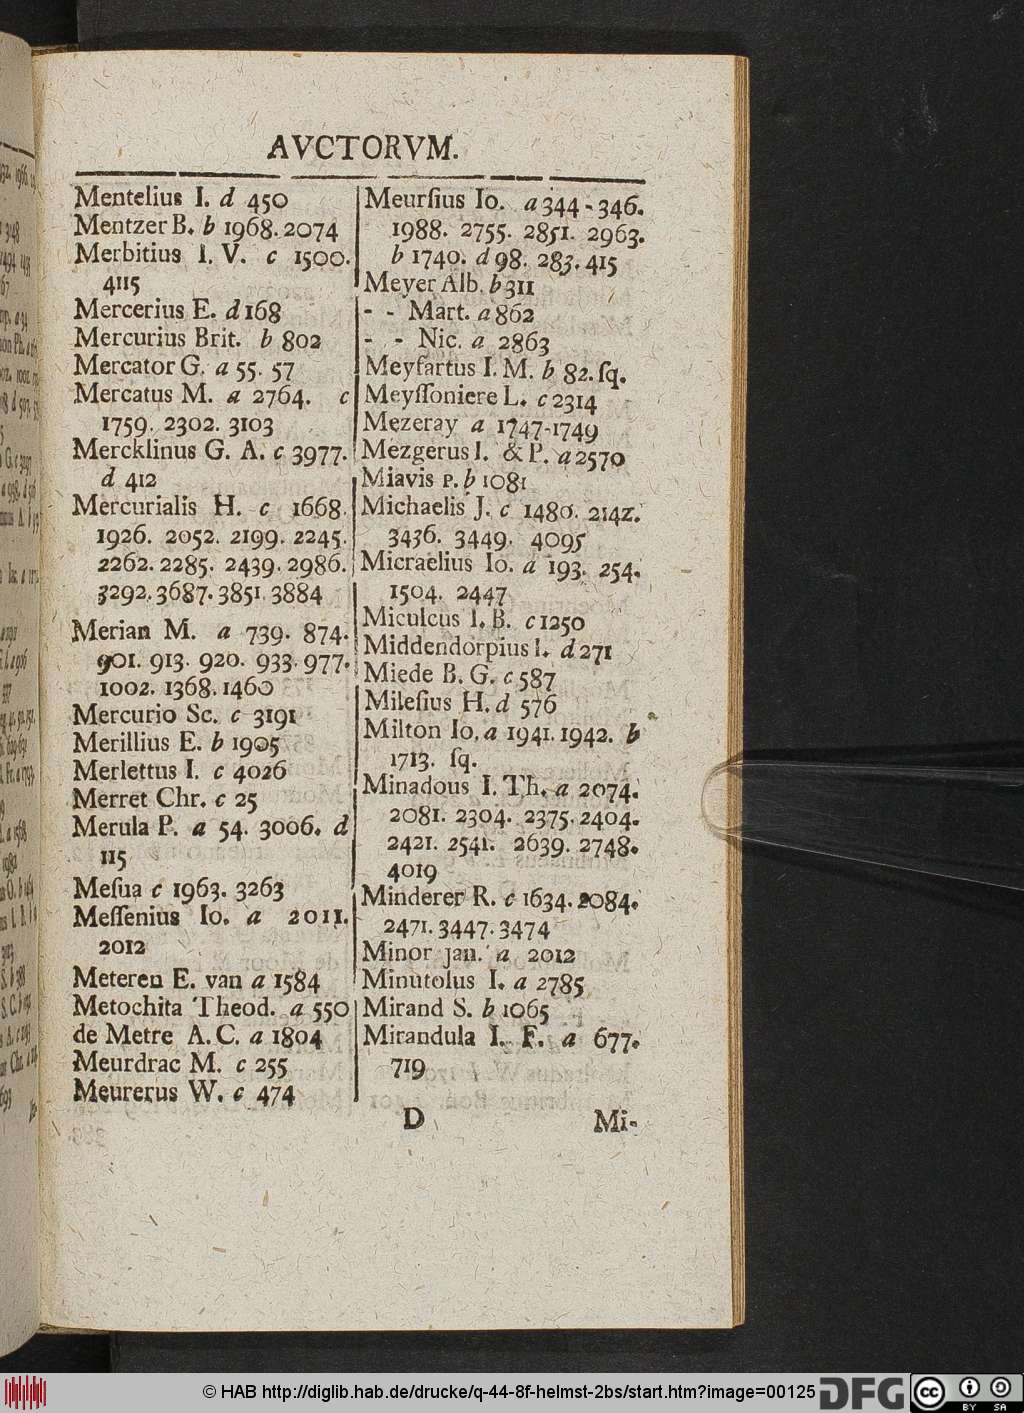 AVCTORVM.
Mentelius I. d 450
Mentzer B. b 1968. 2074
Merbitius I. V. c 1500.
4115
Mercerius E. d 168
Mercurius Brit. b 802
Mercator G. a 55. 57
Mercatus M. a 2764. c
1759. 2302. 3103
Mercklinus G. A. c 3977.
d 412
Mercurialis H. c 1668.
1926. 2052. 2199. 2245.
2262. 2285. 2439. 2986.
3292. 3687. 3851. 3884
Merian M. a 739. 874.
901. 913. 920. 933. 977.
1002. 1368. 1460
Mercurio Sc. c 3191
Merillius E. b 1905
Merlettus I. c 4026
Merret Chr. c 25
Merula P. a 54. 3006. d
115
Meſua c 1963. 3263
Meſſenius Io. a 2011.
2012
Meteren E. van a 1584
Metochita Theod. a 550
de Metre A. C. a 1804
Meurdrac M. c 255
Meurerus W. c 474
Meurſius Io. a 344-346.
1988. 2755. 2851. 2963.
b 1740. d 98. 283. 415
Meyer Alb. b 311
- - Mart. a 862
- - Nic. a 2863
Meyfartus I. M. b 82. ſq.
Meyſſoniere L. c 2314
Mezeray a 1747-1749
Mezgerus I. & P. a 2570
Miavis P. b 1081
Michaelis J. c 1480. 2142.
3436. 3449. 4095
Micraelius Io. a 193. 254.
1504. 2447
Miculcus I. B. c 1250
Middendorpius I. d 271
Miede B. G. c 587
Mileſius H. d 576
Milton Io. a 1941. 1942. b
1713. ſq.
Minadous I. Th. a 2074.
2081. 2304. 2375. 2404.
2421. 2541. 2639. 2748.
4019
Minderer R. c 1634. 2084.
2471. 3447. 3474
Minor jan. a 2012
Minutolus I. a 2785
Mirand S. b 1065
Mirandula I. F. a 677.
719
D
Mi-
© HAB http://diglib.hab.de/drucke/q-44-8f-helmst-2bs/start.htm?image=00125
DFG
cc BY SA